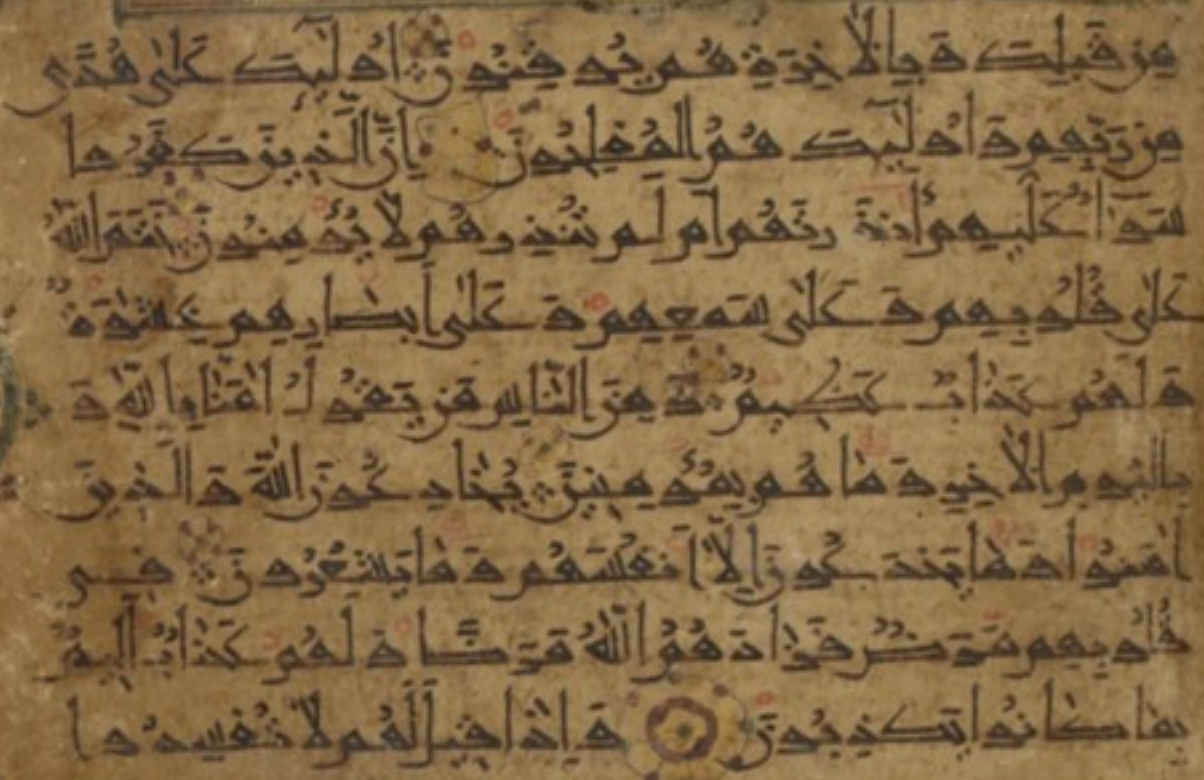 مِن قَبْلِكَ وَبِالْأَخِرَةِ هُمْ يُوقِنُونَ أُولَٰئِكَ عَلَىٰ هُدًى
مِن رَّبِّهِمْ وَأُولَٰئِكَ هُمُ الْمُفْلِحُونَ إِنَّ الَّذِينَ كَفَرُوا
سَوَاءٌ عَلَيْهِمْ ءَأَنذَرْتَهُمْ أَمْ لَمْ تُنذِرْهُمْ لَا يُؤْمِنُونَ خَتَمَ اللَّهُ
عَلَىٰ قُلُوبِهِمْ وَعَلَىٰ سَمْعِهِمْ وَعَلَىٰ أَبْصَارِهِمْ غِشَٰوَةٌ
وَلَهُمْ عَذَابٌ عَظِيمٌ وَمِنَ النَّاسِ مَن يَقُولُ آمَنَّا بِاللَّهِ وَ
بِالْيَوْمِ الْأَخِرِ وَمَا هُم بِمُؤْمِنِينَ يُخَادِعُونَ اللَّهَ وَالَّذِينَ
آمَنُوا وَمَا يَخْدَعُونَ إِلَّا أَنفُسَهُمْ وَمَا يَشْعُرُونَ فِي
قُلُوبِهِم مَّرَضٌ فَزَادَهُمُ اللَّهُ مَرَضًا وَلَهُمْ عَذَابٌ أَلِيمٌ
بِمَا كَانُوا يَكْذِبُونَ وَإِذَا قِيلَ لَهُمْ لَا تُفْسِدُوا